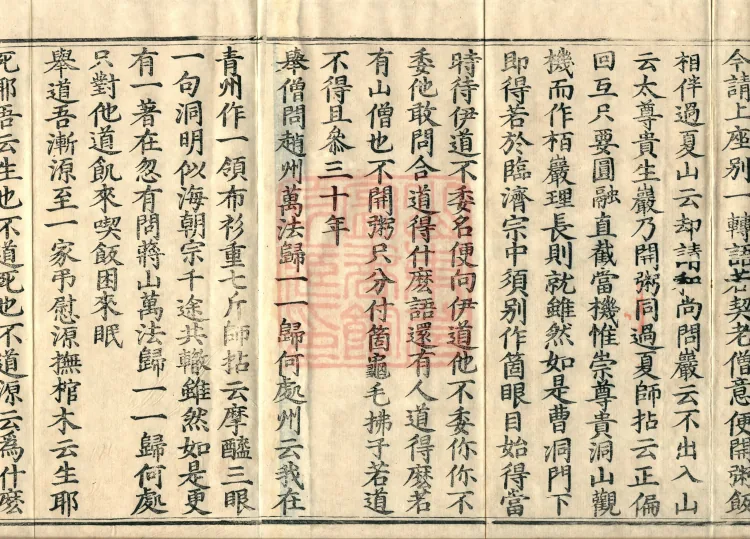 令請上座別一轉語若契老僧意便開粥飯
相伴過夏山云却請和尚問巖云不出入山
云太尊貴生巖乃開粥同過夏師拈云正偏
回互只要圓融直截當機惟崇尊貴洞山觀
機而作栢巖理長則就雖然如是曹洞門下
即得若於臨濟宗中須別作箇眼目始得當
時待伊道不委名便向伊道他不委你你不
委他敢問合道得什麽語還有人道得麽若
有山僧也不開粥只分付箇龜毛拂子若道
不得且參三十年
舉僧問趙州萬法歸一一歸何處州云我在
青州作一領布衫重七斤師拈云摩醯三眼
一句洞明似海朝宗千途共轍雖然如是更
有一著在忽有問蔣山萬法歸一一歸何處
只對他道飢來喫飯困來眠
舉道吾漸源至一家弔慰源撫棺木云生耶
死耶吾云生也不道死也不道源云爲什麽